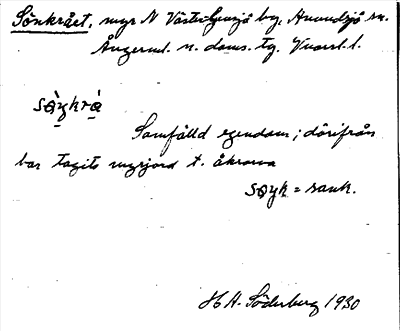 Sönkrået, myr N Västergensjö by, Anundsjö sn.
Ångerml. n. doms. tg. Vnorrl. l.
Samfälld egendom; därifrån
har tagits myrjord t. åkrarna
= sank.
H H. Söderberg 1930